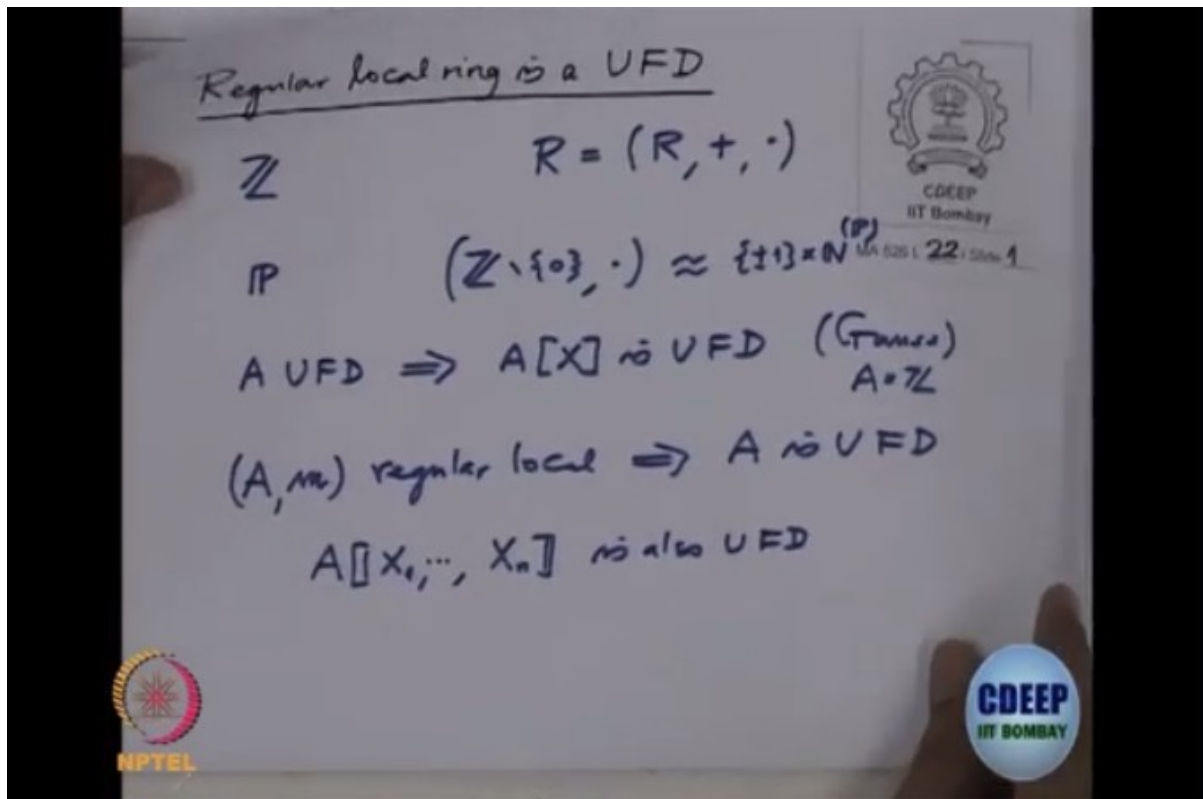 Regular local ring is a UFD
ℤ R = (R, +, ·)
CDEEP
IIT Bombay
MA 526 L 22 / Slide 1
ℙ (ℤ∖{0}, ·) ≈ {±1}×ℕ^(ℙ)
A UFD ⟹ A[X] is UFD (Gauss)
A = ℤ
(A, m) regular local ⟹ A is UFD
A⟦X₁, ⋯, Xₙ⟧ is also UFD
NPTEL
CDEEP
IIT BOMBAY